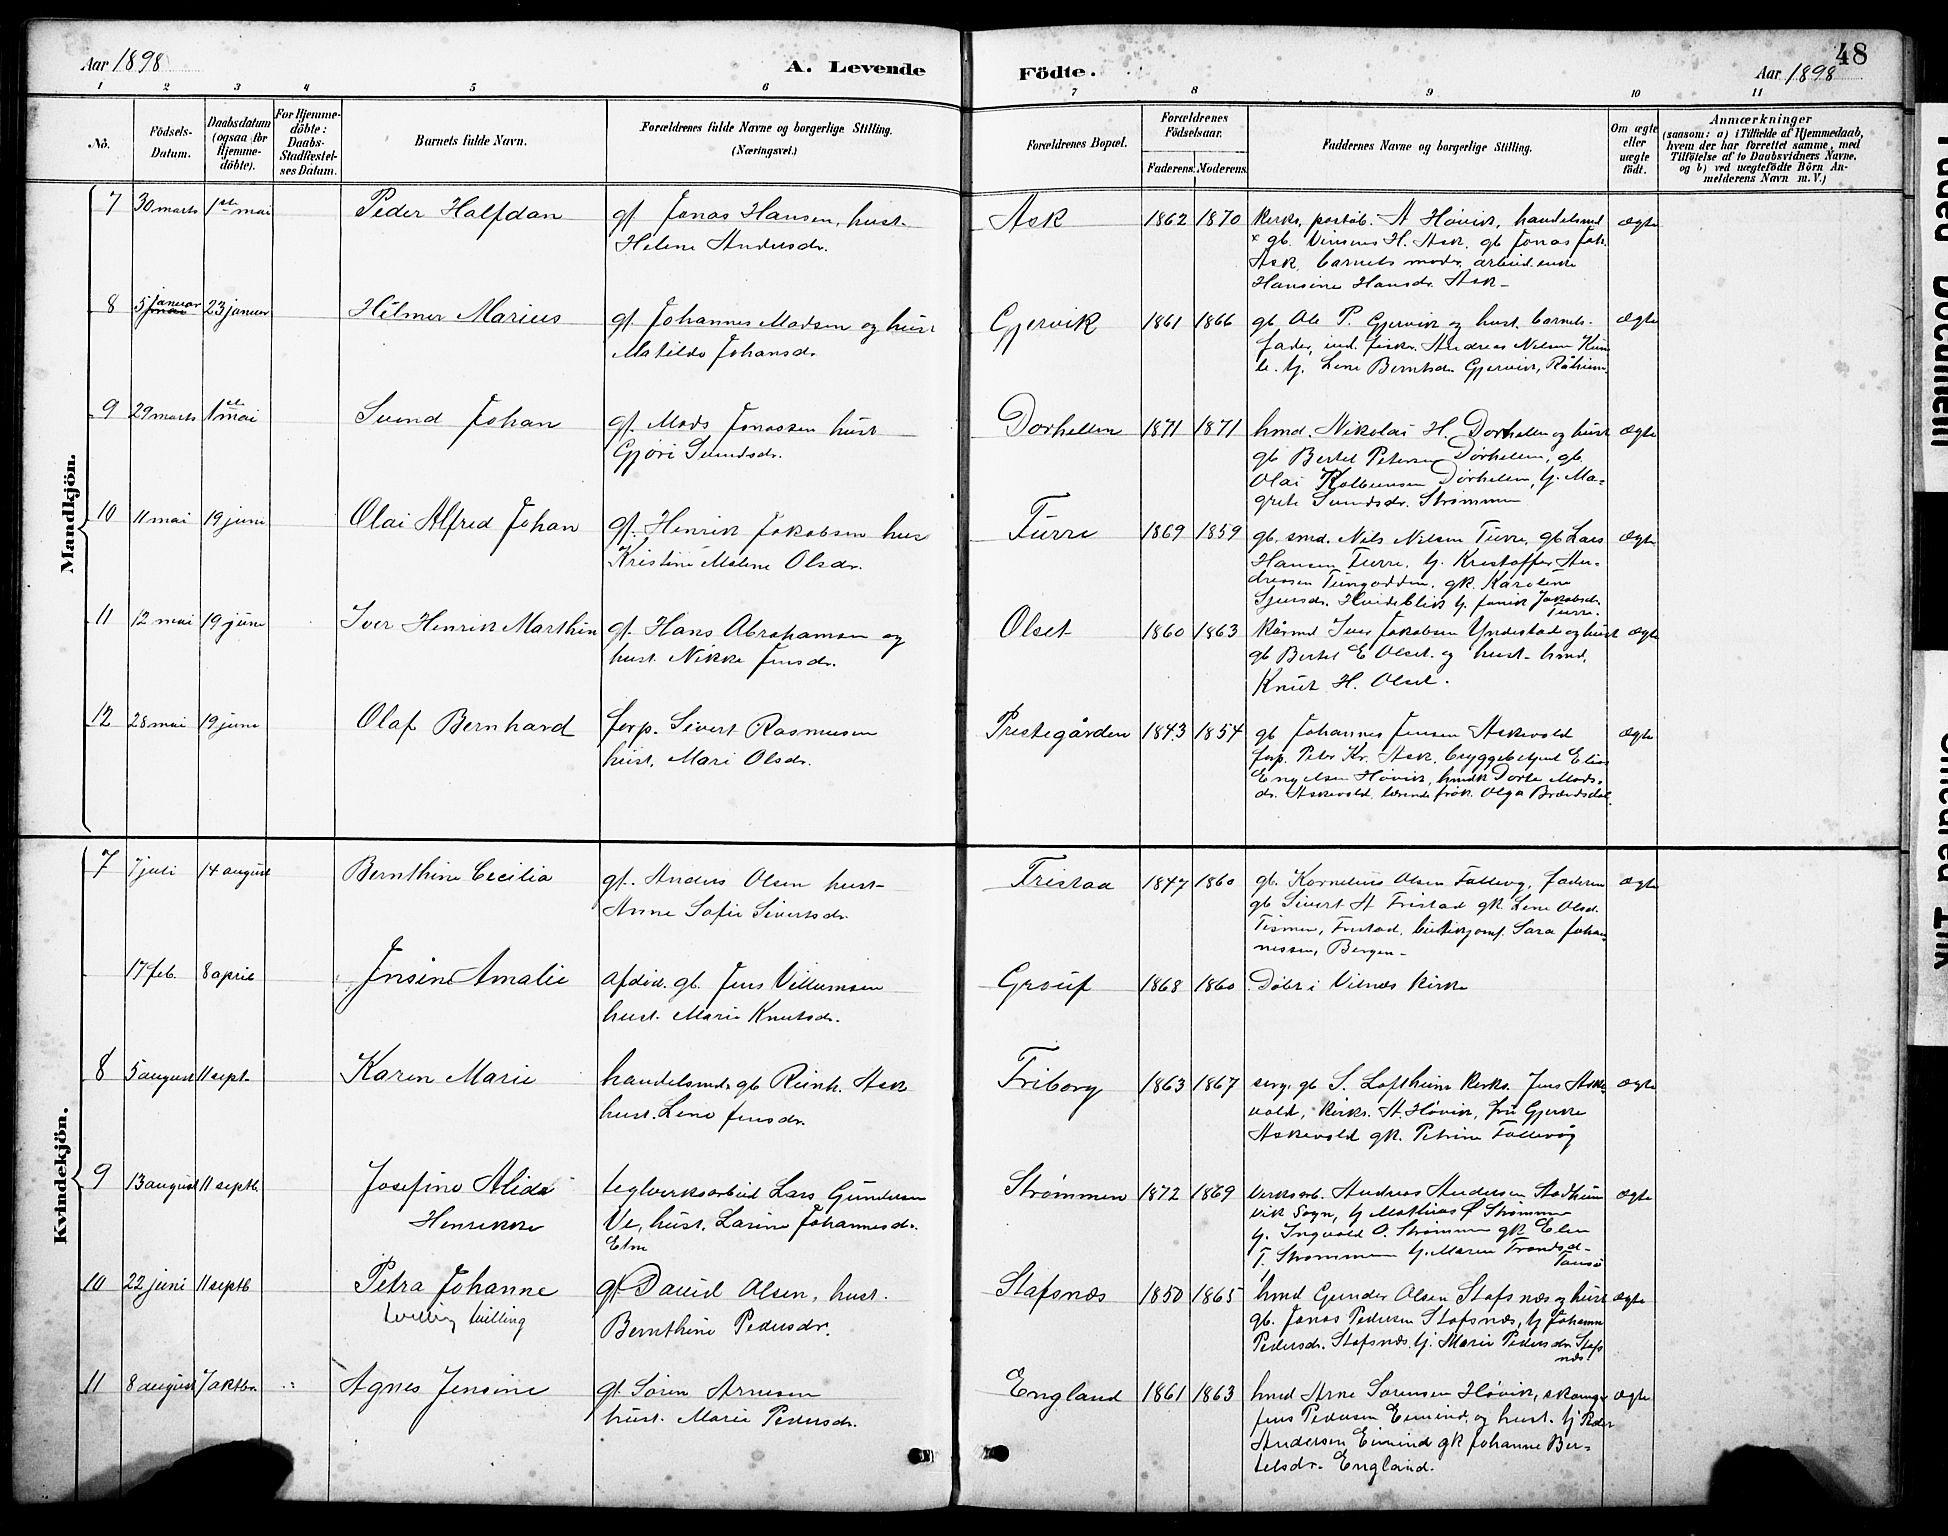 Aar 1898
A. Levende
Födte.
48
Aar 1898
1 2 3 4 5 6 7 8 9 10 11
No.
Födsels-
Datum.
Daabsdatum
(ogsaa for
Hjemme-
döbte).
For Hjemme-
döbte:
Daabs-
Stadfæstel-
ses Datum.
Barnets fulde Navn.
Forældrenes fulde Navne og borgerlige Stilling.
(Næringsvei.)
Forældrenes Bopæl.
Forældrenes
Födselsaar.
Faderens. Moderens.
Faddernes Navne og borgerlige Stilling.
Om ægte
eller
uægte
født.
Anmærkninger
(saasom: a) i Tilfælde af Hjemmedaab,
hvem der har forrettet samme, med
Tilföielse af to Daabsvidners Navne,
og b) ved uægtefödte Börn An-
melderens Navn m. V.)
Mandkjön.
7 30 marts 1ste mai Peder Halfdan gf. Jonas Hansen, hust.
Helene Andersdr.
Ask 1862 1870 kirks, postob. A Høvik, handelsmd
gb. H. Ask, gb Jonas Joh.
Ask, barnets moder, arbeid.enke
Hansine Hansdr. Ask
ægte
8 5 januar 23 januar Hilmer Marius gf. Johannes Madsen og hust
Matilde Johansdr.
Gjervik 1861 1866 gb Ole P. Gjervik og hust. barnets
fader, ind. fisker Andreas Nilsen
Lene Berntsdr Gjervik,
ægte
9 29 marts 1ste mai Svend Johan gf. Mads Jonassen hust
Gjøri Svendsdr.
Dørhellen 1871 1871 hmd. Nikolai H. Dørhellen og hust
gb Bertel Petersen Dørhellen, gb.
Olai Dørhellen, tj. Ma-
grete Svendsdr. Strømmen
ægte
10 11 mai 19 juni Olai Alfred Johan gf. Henrik Jakobsen hus
Kristine Malene Olsdr.
Furre 1869 1859 gb. smd. Nils Nilsen Furre, gb Lars
Hansen Furre, tj. Kristoffer An-
dreassen gk. Karoline
Sjursdr. tj. Jakobsdr.
Furre.
ægte
11 12 mai 19 juni Iver Henrik Marthin gf. Hans Abrahamsen og
hust. Nikka Jensdr.
Olset 1860 1863 kårmd Iver Jakobsen Yndestad og hust
gb Bertel E Olset og hust. hmd,
Knut H. Olset.
ægte
12 28 mai 19 juni Olaf Bernhard forp. Sivert Rasmussen
hust. Mari Olsdr.
Prestegården 1843 1854 gb Johannes Jensen Askevold
forp. Peter Kr. Ask, bryggebetjent Elias
Engelsen Høvik, hmdk Dorte Mads-
dr. Askevold, lærerinde frøk. Olga Brændsdal.
ægte
Kvindekjön.
7 7 juli 14 august Bernthine Cecilia gf. Anders Olsen hust
Anne Sofie Sivertsdr.
Fristad 1847 1860 gb. Kornelius Olsen Follevåg, faderen
gb Sivert A Fristad gk. Lene Olsd.
Fristad, butikjomf. Sara Johan-
nessen, Bergen
ægte
17 feb. 8 april Jensine Amalie afdød. gb. Jens Villumsen
hust. Marie Knutsdr.
Grouf 1868 1860 Døbt i Vilnes kirke
8 5 august 11 sept. Karen Marie handelsmd. gb Reinh. Ask
hust. Lene Jensdr.
Friborg 1863 1867 serg. gb S. Loftheim kirks. Jens Aske-
vold, kirks. A. Høvik, fru Gjerke
Askevold gk. Petrine Follevåg
ægte
9 13 august 11 septb. Josefine Alida
Henrikke
teglverksarbeid Lars Gundersen
Ve, hust. Larine Johannesdr.
Strømmen 1872 1869 verksarb. Andreas Andersen Stadheim
vik Sogn, tj Mathias Ø Strømmen
tj. Ingvald O. Strømmen gk Elen
T. Strømmen tj. Maren Trondsd.
ægte
10 22 juni 11 septb Petra Johanne
tvilling tvilling
gf David Olsen, hust.
Bernthine Pedersdr.
Stafsnæs 1850 1865 hmd Gunder Olsen Stafsnæs og hust
gb. Jonas Pedersen Stafsnæs, tj Johanne
Pedersdr. Stafsnæs, tj. Marie Pedersdr Stafs
næs.
ægte
11 8 august 7 oktbr. Agnes Jensine gf. Søren Arnesen
hust. Marie Pedersdr.
England 1861 1863 hmd Arne Sørensen Høvik,
Jens Pedersen Eimind, og hust. tj Peder
Andersen Eimind gk Johanne Ber-
telsdr. England.
ægte